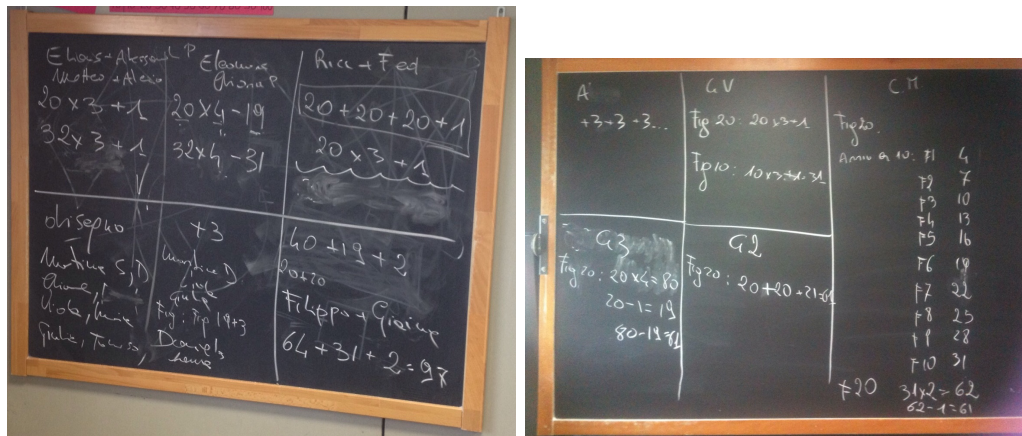 Matteo + Alessio
20 x 3 + 1
32 x 3 + 1
Eleonora
20 x 4 - 19
32 x 4 - 31
Ricc + Fed
20 + 20 + 20 + 1
20 x 3 + 1
disegno
Martina S, D,
Viola,
Giulia,
+3
Martina D
Viola
Giulia
Fig: Fig 19+3
Daniele
40 + 19 + 2
20+20
Filippo +
64 + 31 + 2 = 97
A
+3 +3 +3...
GV
Fig 20: 20x3+1
Fig 10: 10x3+1=31
CM
Fig 20.
Arrivo a 10: F1 4
F2 7
F3 10
F4 13
F5 16
F6 19
F7 22
F8 25
F9 28
F10 31
F20 31x2=62
62-1=61
G3
Fig 20: 20x4=80
20-1=19
80-19=61
G2
Fig 20: 20+20+21=61